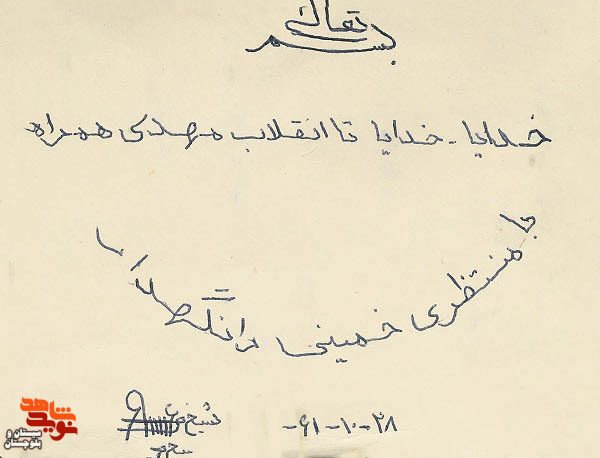 بسم تعالی
خدایا - خدایا تا انقلاب مهدی همراه
با منتظری خمینی را نگهدار
۶۱-۱۰-۲۸
نوید شاهد
سیستان و بلوچستان